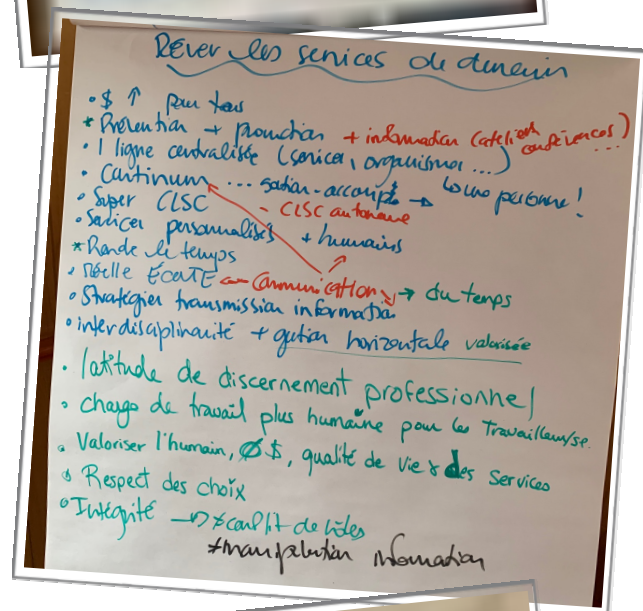 Rêver les services de demain
• $ ↑ pour tous
* Prévention + promotion + information (ateliers conférences) ...
• 1 ligne centralisée (services, organismes ...)
• Continuum ... gestion-accomp → 1 personne!
• Super CLSC - CLSC autonome
• Services personnalisés + humains
* Rendre le temps
• Réelle ÉCOUTE Communication → du temps
• Stratégies transmission information
• interdisciplinarité + gestion horizontale valorisée
• latitude de discernement professionnel
• charge de travail plus humaine pour les Travailleurs/se.
• Valoriser l'humain, Ø $, qualité de vie & des Services
• Respect des choix
• Intégrité → ≠ conflit de rôles
≠ manipulation information